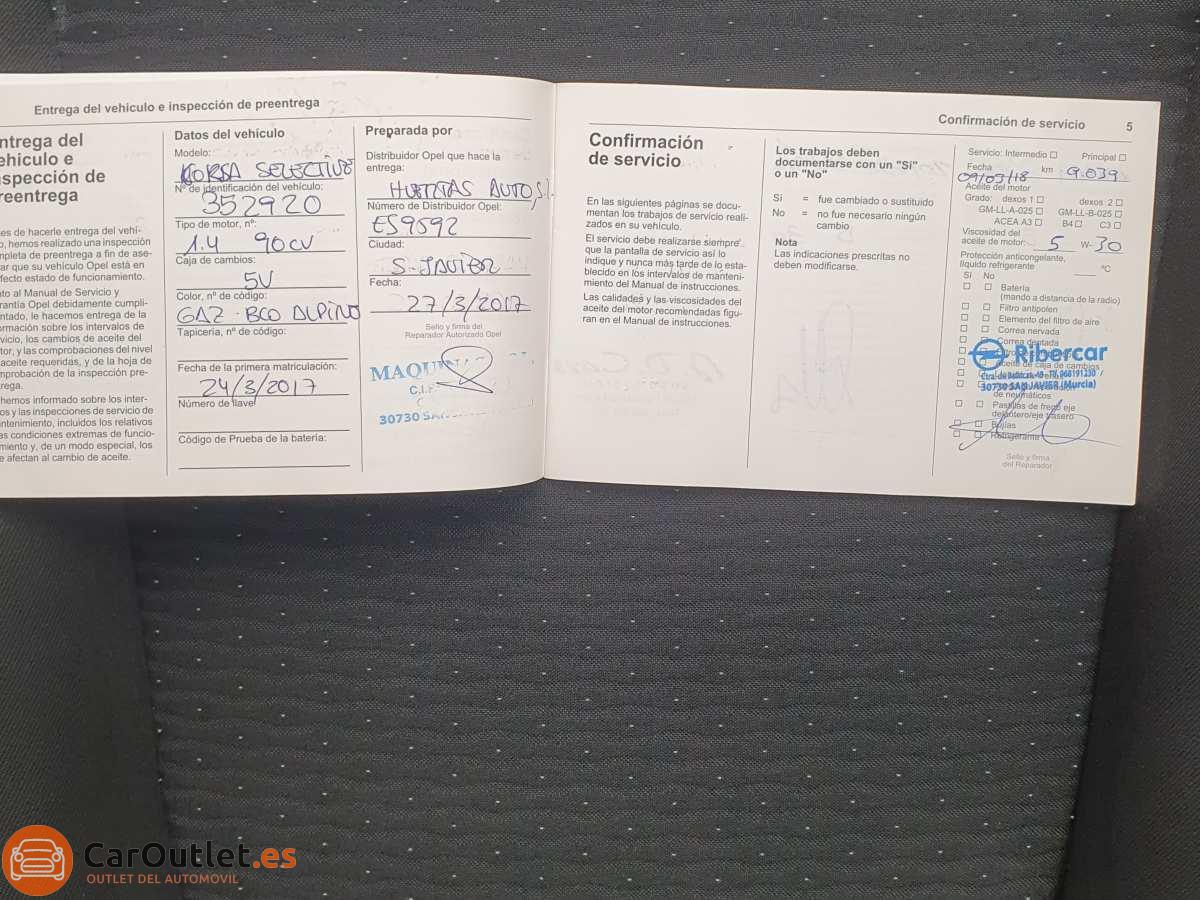 Entrega del vehículo e inspección de preentrega
ntrega del
ehículo e
nspección de
reentrega
es de hacerle entrega del vehí-
o, hemos realizado una inspección
mpleta de preentrega a fin de ase-
ar que su vehículo Opel está en
fecto estado de funcionamiento.
nto al Manual de Servicio y
rantía Opel debidamente cumpli-
ntado, le hacemos entrega de la
ormación sobre los intervalos de
vicio, los cambios de aceite del
tor, y las comprobaciones del nivel
aceite requeridas, y de la hoja de
mprobación de la inspección pre-
rega.
hemos informado sobre los inter-
os y las inspecciones de servicio de
ntenimiento, incluidos los relativos
as condiciones extremas de funcio-
miento y, de un modo especial, los
e afectan al cambio de aceite.
Datos del vehículo
Modelo:
KORSA SELECTIVE
Nº de identificación del vehículo:
352920
Tipo de motor, nº:
1.4 90CV
Caja de cambios:
5V
Color, nº de código:
GAZ - BCO ALPINO
Tapicería, nº de código:
Fecha de la primera matriculación:
24/3/2017
Número de llave
Código de Prueba de la batería:
Preparada por
Distribuidor Opel que hace la
entrega:
HUERTAS AUTO, S.L
Número de Distribuidor Opel:
ES9592
Ciudad:
S. JAVIER
Fecha:
27/3/2017
Sello y firma del
Reparador Autorizado Opel
MAQUIN
C.I.F
30730 SAN
Confirmación de servicio 5
Confirmación
de servicio
En las siguientes páginas se docu-
mentan los trabajos de servicio reali-
zados en su vehículo.
El servicio debe realizarse siempre
que la pantalla de servicio así lo
indique y nunca más tarde de lo esta-
blecido en los intervalos de manteni-
miento del Manual de instrucciones.
Las calidades y las viscosidades del
aceite del motor recomendadas figu-
ran en el Manual de instrucciones.
Los trabajos deben
documentarse con un "Sí"
o un "No"
Sí = fue cambiado o sustituido
No = no fue necesario ningún
cambio
Nota
Las indicaciones prescritas no
deben modificarse.
Servicio: Intermedio Principal
Fecha 09/03/18 km 9.039
Aceite del motor
Grado: dexos 1 dexos 2
GM-LL-A-025 GM-LL-B-025
ACEA A3 B4 C3
Viscosidad del
aceite de motor: 5 W- 30
Protección anticongelante,
líquido refrigerante ºC
Sí No
Batería
(mando a distancia de la radio)
Filtro antipolen
Elemento del filtro de aire
Correa nervada
Correa dentada
Ribercar
aceite de caja de cambios
30730 SAN JAVIER (Murcia)
de neumáticos
Pastillas de freno eje
delantero/eje trasero
Bujías
Refrigerante
Sello y firma
del Reparador
CarOutlet.es
OUTLET DEL AUTOMOVIL